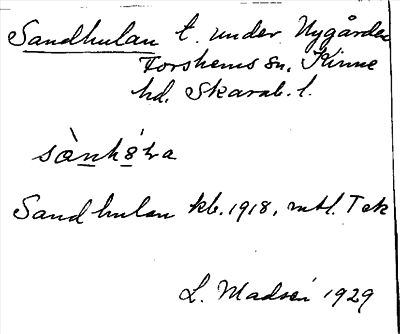 Sandhulan t. under Nygården
Forshems sn, Kinne
hd. Skarab. l.
Sandhulan kb. 1918, mtl. Tek
L. 1929